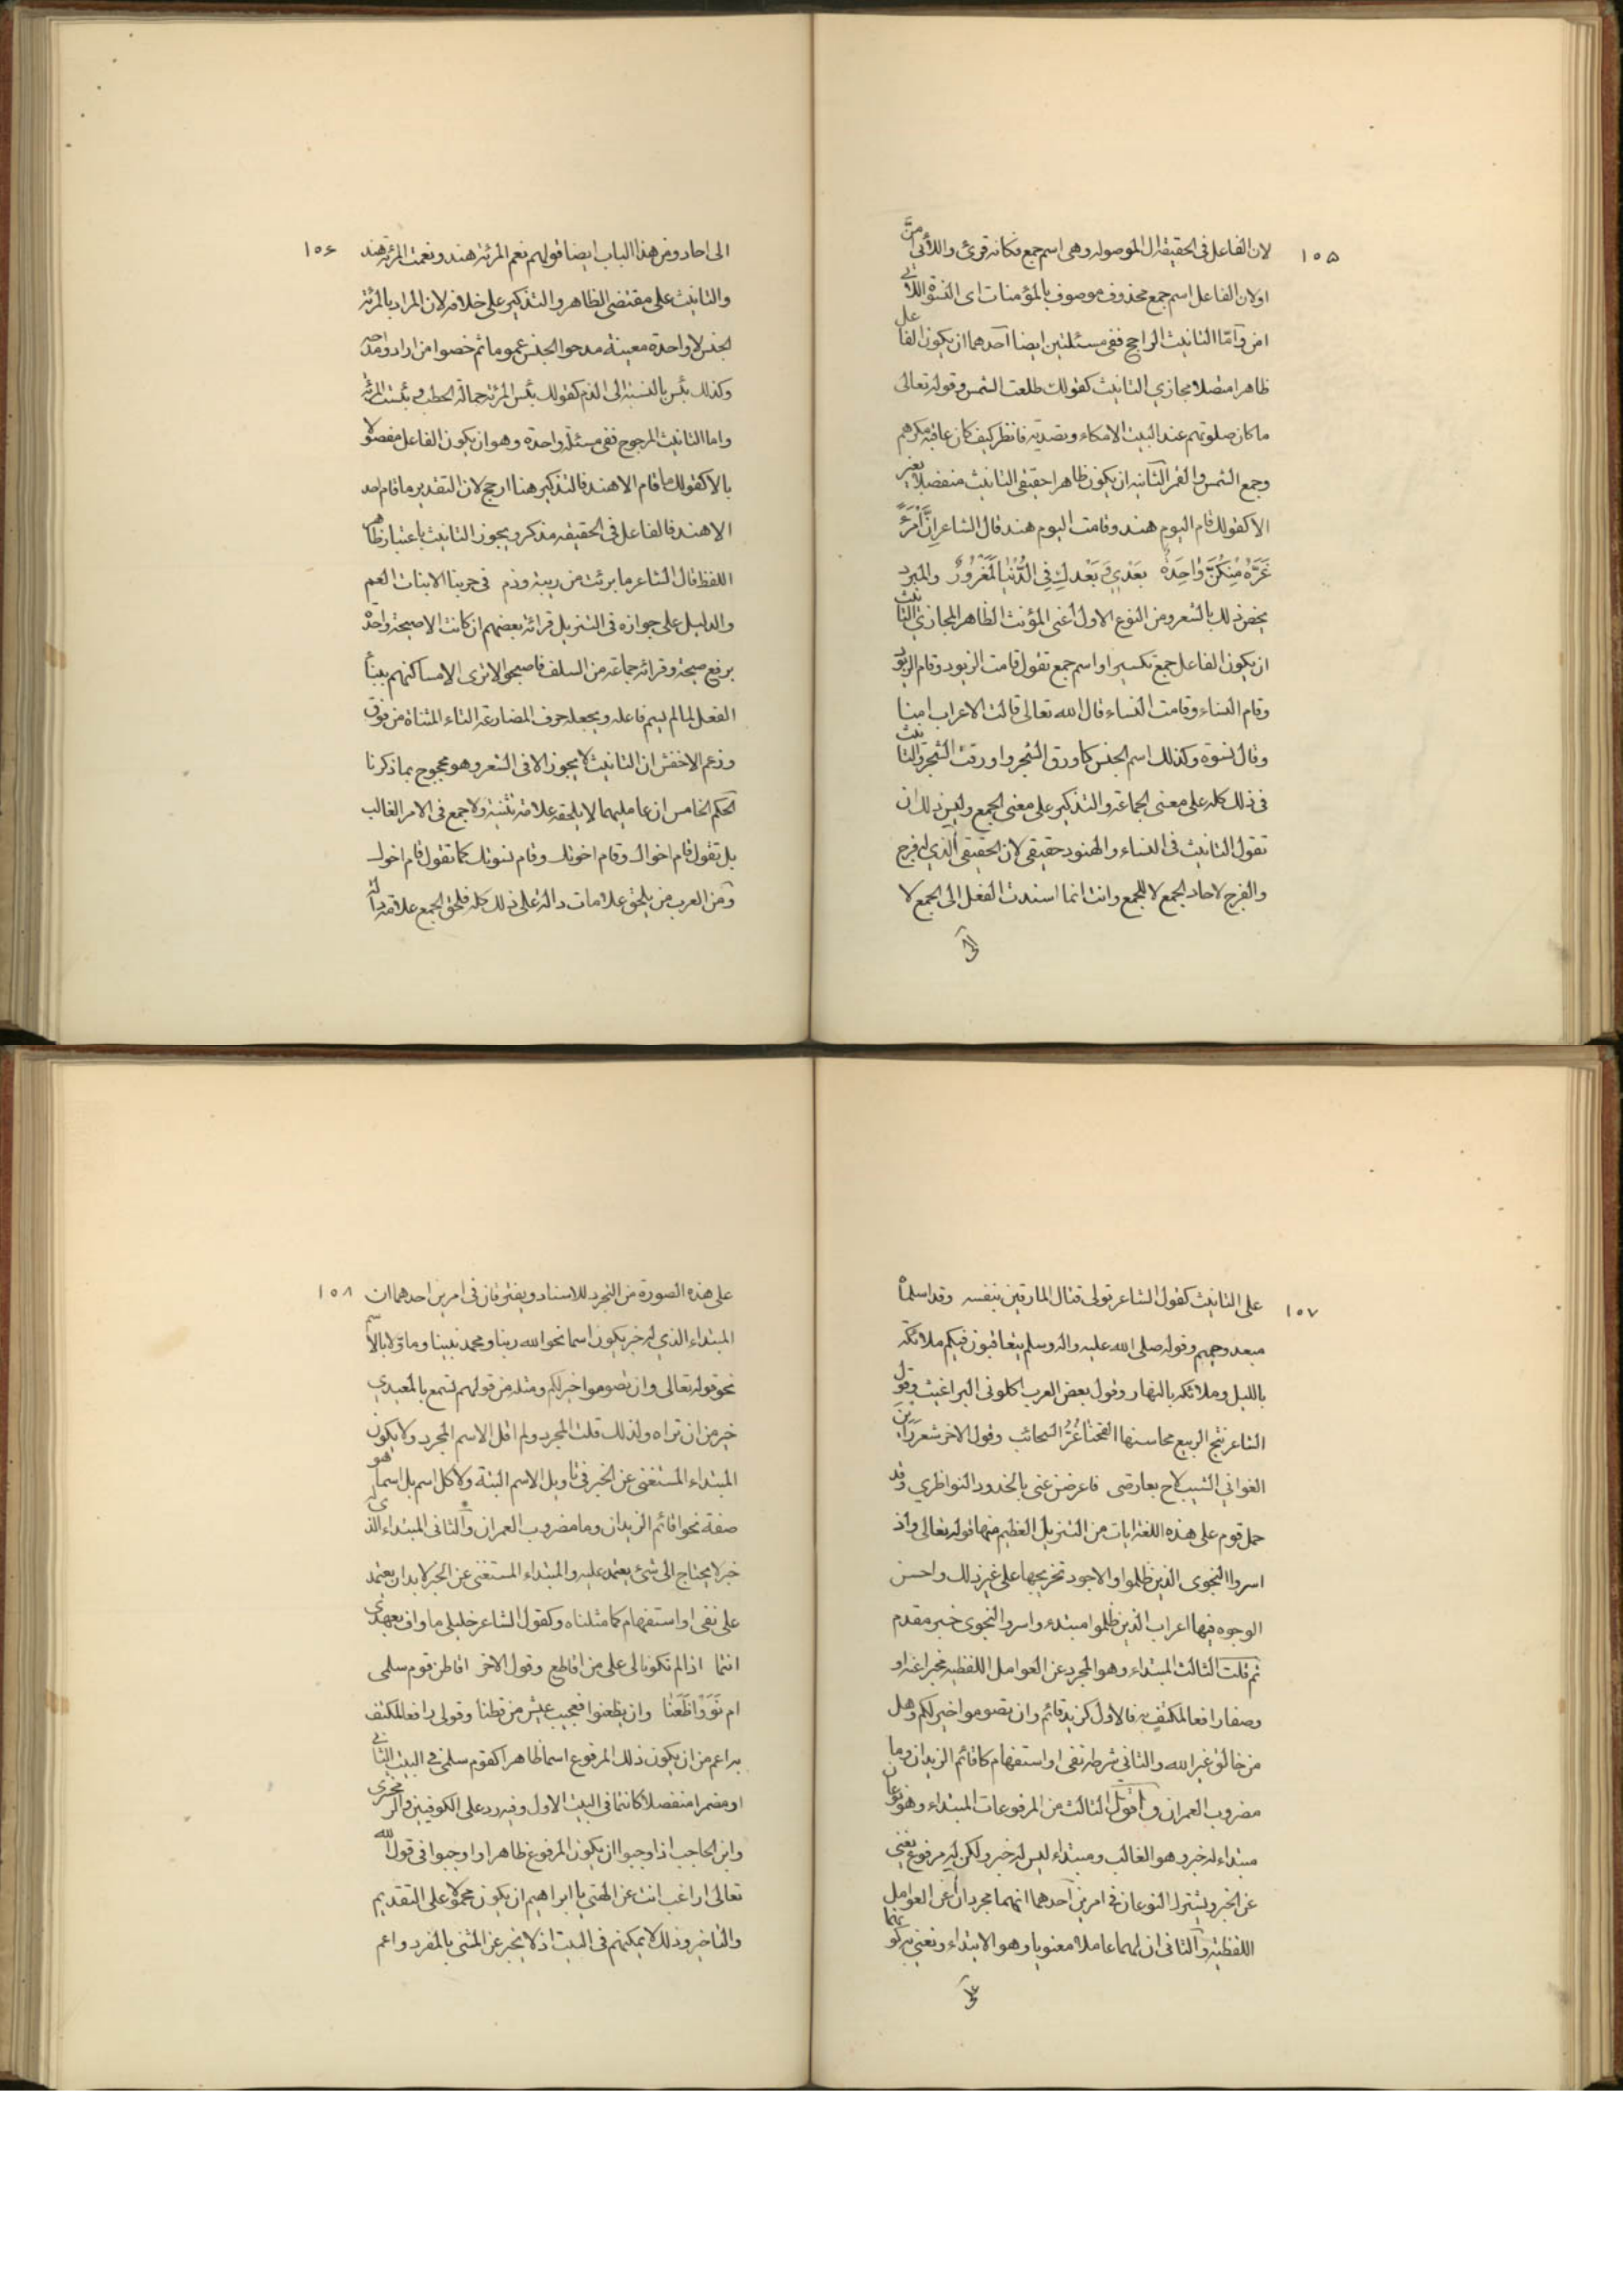 ١٠٥
لان الفاعل فى الحقيقة ال الموصوله وهى اسم جمع فكانه قرئ واللائي امنّ
اولان الفاعل اسم جمع محذوف موصوف بالمؤمنات اى النسوة اللاتي
امن وآمّا التانيث الراجح ففى مسئلتين ايضا آحدهما ان يكون الفاعل
ظاهرا متصلا مجازي التانيث كقولك طلعت الشمس وقوله تعالى
ما كان صلوتهم عند البيت الا مكاء وتصدية فانظر كيف كان عاقبة مكرهم
وجمع الشمس والقمر الثانيه ان يكون ظاهرا حقيقى التانيث منفصلا بغير
الا كقولك قام اليوم هند وقامت اليوم هند قال الشاعر اِنَّ اْمَرَءً
غَرَّهُ مِنْكُنَّ وْاحِدَةٌ بَعْدِي وَبَعْدكِ فِي الدُّنْيا لَمَغْرُورٌ والمبرد
يخص ذلك بالشعر ومن النوع الاول أعنى المؤنث الظاهر المجازى التانيث
ان يكون الفاعل جمع تكسير او اسم جمع تقول قامت الزيود وقام الزيود
وقام النساء وقامت النساء قال الله تعالى قالت الاعراب امنا
وقال نسوة وكذلك اسم الجنس كاورق الشجر واورقت الشجر والتانيث
فى ذلك كله على معنى الجماعة والتذكير على معنى الجمع وليس ذلك ان
تقول التانيث فى النساء والهنود حقيقى لان الحقيقى الذي له فرج
والفرج لاحاد الجمع لا للجمع وانت انما اسندت الفعل الى الجمع لا
الى
١٠٦
الى احاد ومن هذا الباب ايضا قولهم نعم المرئة هند ونعمت المرئة هند
والتانيث على مقتضى الظاهر والتذكير على خلافه لان المراد بالمرئة
الجنس لا واحدة معينة مدحوا الجنس عموما ثم خصوا من ارادوا مدحه
وكذلك بئس بالنسبة الى الذم كقولك بئس المرئة حمالة الحطب وبئست المرئة
واما التانيث المرجوح ففى مسئلة واحدة وهو ان يكون الفاعل مفصولا
بالا كقولك ما قام الا هند فالتذكير هنا ارجح لان التقدير ما قام احد
الا هند فالفاعل فى الحقيقه مذكر ويجوز التانيث باعتبار ظاهر
اللفظ قال الشاعر ما برئت من ريبة وذم فى حربنا الا بنات العم
والدليل على جوازه فى التنزيل قرائة بعضهم ان كانت الا صيحة واحدة
برفع صيحة وقرائة جماعة من السلف فاصبحوا لا ترى الا مساكنهم ببناء
الفعل لما لم يسم فاعله وبجعله حرف المضارعة التاء المثناة من فوق
وزعم الاخفش ان التانيث لا يجوز الا فى الشعر وهو محجوج بما ذكرنا
الحكم الخامس ان عامليهما لا يلحقه علامة تثنية ولا جمع فى الامر الغالب
بل تقول قام اخواك وقام اخوتك وقام نسوتك كما تقول قام اخوك
ومن العرب من يلحق علامات دالة على ذلك كله فلحق الجمع علامة دالة
١٠٧
على التانيث كقول الشاعر تولى قتال المارقين بنفسه وقد اسلماه
مبعد وحميم وقوله صلى الله عليه واله وسلم يتعاقبون فيكم ملائكة
بالليل وملائكه بالنهار وقول بعض العرب اكلونى البراغيث وقول
الشاعر نتج الربيع محاسنها القحنها غُرُّ السحائب وقول الاخر شعر رَأَيْنَ
الغواني الشيب لاح بعارضى فاعرضن عنى بالخدود النواظري وقد
حمل قوم على هذه اللغة ايات من التنزيل العظيم منها قوله تعالى واذ
اسروا النجوى الذين ظلموا والاجود تخريجها على غير ذلك واحسن
الوجوه فيها اعراب الذين ظلموا مبتدء واسروا النجوى خبر مقدم
ثم قلت الثالث المبتداء وهو المجرد عن العوامل اللفظيه مخبرا عنه او
وصفا رافعا لمكتفٍ به فالاول كزيد قائم وان تصوموا خير لكم وهل
من خالق غير الله والثانى شرطه نفى او استفهام كاقائم الزيدان وما
مضروب العمران وآقول الثالث من المرفوعات المبتداء وهو نوعان
مبتداء له خبر وهو الغالب ومبتداء ليس له خبر ولكن له مرفوع يغنى
عن الخبر ويشترك النوعان فى امرين آحدهما انهما مجردان عن العوامل
اللفظية وآلثانى ان لهما عاملا معنويا وهو الابتداء ونعنى به كونهما
على
١٠٨
على هذه الصورة من التجرد للاسناد ويفترقان فى امرين احدهما ان
المبتداء الذي له خبر يكون اسما نحو الله ربنا ومحمد نبينا وماؤلا بالاسم
نحو قوله تعالى وان تصوموا خير لكم ومثله من قولهم تسمع بالمعيدي
خير من ان تراه ولذلك قلت المجرد ولم اقل الاسم المجرد ولا يكون
المبتداء المستغنى عن الخبر فى تاويل الاسم البتة ولا كل اسم بل اسما هو
صفة نحو اقائم الزيدان وما مضروب العمران وآلثانى المبتداء الذى له
خبر لا يحتاج الى شئ يعتمد عليه والمبتداء المستغنى عن الخبر لا بد ان يعتمد
على نفى او استفهام كما مثلناه وكقول الشاعر خليلى ما واف بعهدى
انتما اذا لم تكونا لى على من اقاطع وقول الاخر اقاطن قوم سلمى
ام نَوَوْا ظَعَنا وان يظعنوا فعجيب عيش من قطنا وقولى رافعا لمكتف
به اعم من ان يكون ذلك المرفوع اسما ظاهرا كقوم سلمى فى البيت الثانى
او مضمرا منفصلا كانتما فى البيت الاول وفيه رد على الكوفيين والزمخشرى
وابن الحاجب اذ اوجبوا ان يكون المرفوع ظاهرا واوجبوا فى قول الله
تعالى اراغب انت عن الهتي يا ابراهيم ان يكون محمولا على التقديم
والتاخير وذلك لا يمكنهم فى البيت اذ لا يخبر عن المثنى بالمفرد واعم